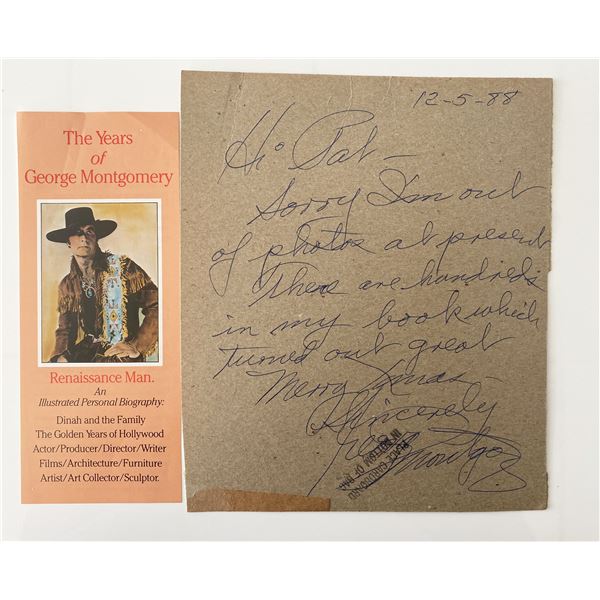 The Years
of
George Montgomery
Renaissance Man.
An
Illustrated Personal Biography:
Dinah and the Family
The Golden Years of Hollywood
Actor/Producer/Director/Writer
Films/Architecture/Furniture
Artist/Art Collector/Sculptor.
12-5-88
Hi Pat —
Sorry I'm out
of photos at present
There are hundreds
in my book which
turned out great
Merry Xmas —
Sincerely
Geo Montgo
PLACE CARDBOARD
IN BOTTOM OF BAG